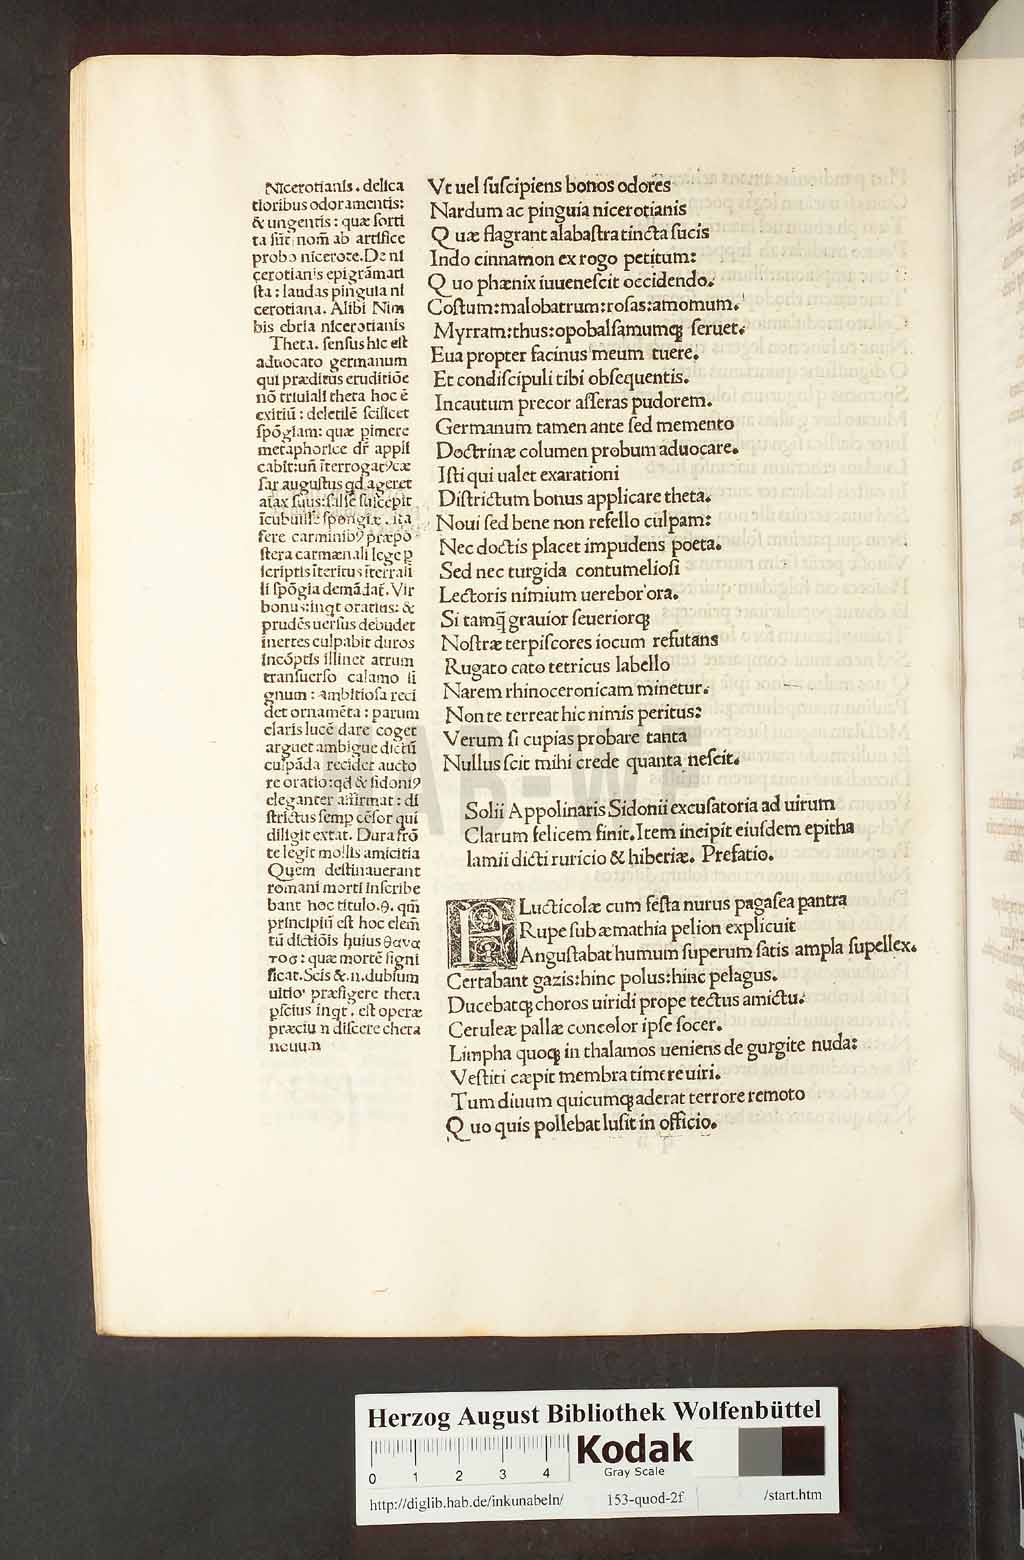 Nicerotianis . delica
tioribus odoramentis:
& ungentis : quæ sorti
ta sūt nom̄ ab artifice
probo nicerote. De ni
cerotianis epigrāmati
sta : laudas pinguia ni
cerotiana. Alibi Nim
bis ebria nicerotianis
Theta. sensus hic est
aduocato germanum
qui præditus eruditiōe
nō triuiali theta hoc ē
exitiū : deletilē scilicet
spōgiam: quæ pimere
metaphorice dr̄ appil
cabit: un̄ īterrogatꝰ cæ
sar augustus qd ageret
aiax suus: fuisse suscepit
īcubuisse spongiæ . ita
fere carminibꝰ præpo
stera carmæn ali lege p̱
scriptis īteritus īterrali
li spōgia demādat̄. Vir
bonus: inqt oratius: &
prudēs uersus debudet
inertes culpabit duros
incōptis illinet atrum
transuerso calamo si
gnum : ambitiosa reci
det ornamēta : parum
claris lucē dare coget
arguet ambigue dictū
culpāda recidet aucto
re oratio: qd & sidoniꝰ
eleganter affirmat : di
strictus semp cēsor qui
diligit extat. Dura frō
te legit mollis amicitia
Quem destinauerant
romani morti inscribe
bant hoc titulo .θ. qm̄
principiū est hoc elem̄
tū dictiōis huius θανα
τοσ : quæ mortē signi
ficat. Scis & .n. dubium
ultioꝰ præfigere theta
pscius inqt . est operæ
præciu n discere thera
neuu.n
Vt uel suscipiens bonos odores
Nardum ac pinguia nicerotianis
Quæ flagrant alabastra tincta sucis
Indo cinnamon ex rogo petitum:
Quo phœnix iuuenescit occidendo.
Costum: malobatrum: rosas: amomum.
Myrram: thus: opobalsamumqȝ seruet.
Eua propter facinus meum tuere.
Et condiscipuli tibi obsequentis.
Incautum precor asseras pudorem.
Germanum tamen ante sed memento
Doctrinæ columen probum aduocare.
Isti qui ualet exarationi
Districtum bonus applicare theta.
Noui sed bene non refello culpam:
Nec doctis placet impudens poeta.
Sed nec turgida contumeliosi
Lectoris nimium uerebor ora.
Si tamq̄ grauior seueriorqȝ
Nostræ terpiscores iocum refutans
Rugato cato tetricus labello
Narem rhinoceronicam minetur.
Non te terreat hic nimis peritus:
Verum si cupias probare tanta
Nullus scit mihi crede quanta nescit.
Solii Appolinaris Sidonii excusatoria ad uirum
Clarum felicem finit. Item incipit eiusdem epitha
lamii dicti ruricio & hiberiæ. Prefatio.
FLucticolæ cum festa nurus pagasea pantra
Rupe sub æmathia pelion explicuit
Angustabat humum superum satis ampla supellex.
Certabant gazis: hinc polus: hinc pelagus.
Ducebatqȝ choros uiridi prope tectus amictu.
Ceruleæ pallæ concolor ipse socer.
Limpha quoqȝ in thalamos ueniens de gurgite nuda:
Vestiti cæpit membra timere uiri.
Tum diuum quicumqȝ aderat terrore remoto
Quo quis pollebat lusit in officio.
HAB-WF
Herzog August Bibliothek Wolfenbüttel
Kodak
Gray Scale
0 1 2 3 4
http://diglib.hab.de/inkunabeln/ 153-quod-2f /start.htm